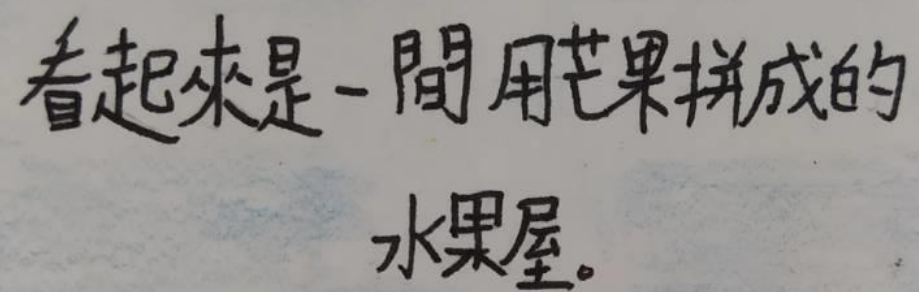 看起來是一間用芒果拼成的
水果屋。